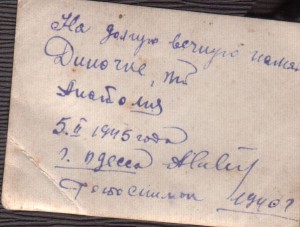 На долгую вечную памя
Диночке, от
Анатолия
5.II 1945 года
г. Одесса
Фотоснимок 1940 г